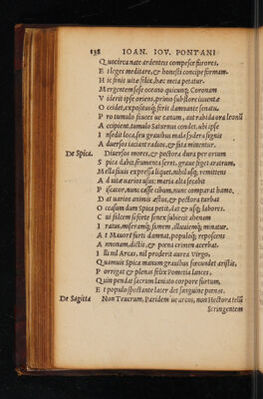 138 IOAN. IOV. PONTANI
Quocirca nate ardentes compesce furores,
E t leges meditare, & honesti concipe formam.
H ic finis uitæ felix, hæc meta petatur.
Mergentem sese oceano quicunq; Coronam
V iderit ipse oriens, primo sub
O ccidet, expositusq; ferit damnante senatu.
P ro tumulo fiuere ue canum, aut rabida ora leonū
A ccipient, tumulo Saturnus condet, ubi ipse
I nsedit loca, seu grauibus male sydera signis
A duersos iaciunt radios, & fata minentur.
De Spica. Diuersos mores, & pectora dura per orum
S pica dabit, frumenta seret, graue figet aratrum,
M ella suis expressa liquet, nihil usq; remittens
A d uitæ narios usus; maria alta secabit
P iscator, nunc casse cibum, nunc comparat hamo,
D at uarios animis æstus, & pectora turbat
O ccasum dum Spica petit, dat & usq; labores.
C ui filicem si forte sinex subierit abenam
I ratus, miseramq;
A t Mauors furti damnat, populoq; reposcens
A nnonam, dictis, & poena crimen acerbat.
I lli nil Arcas, nil proderit aurea Virgo,
Quamuis Spica manum grauibus fœcundet aristis,
P orrigat & plenas felix Pomona lances,
Quin pendat secrum laniato corpore furtum,
E t populo spectante lacer det sanguine pœnas.
De Sagitta Non Teucrum, Paridem ue arcus, non Hectora tela
Stringentem